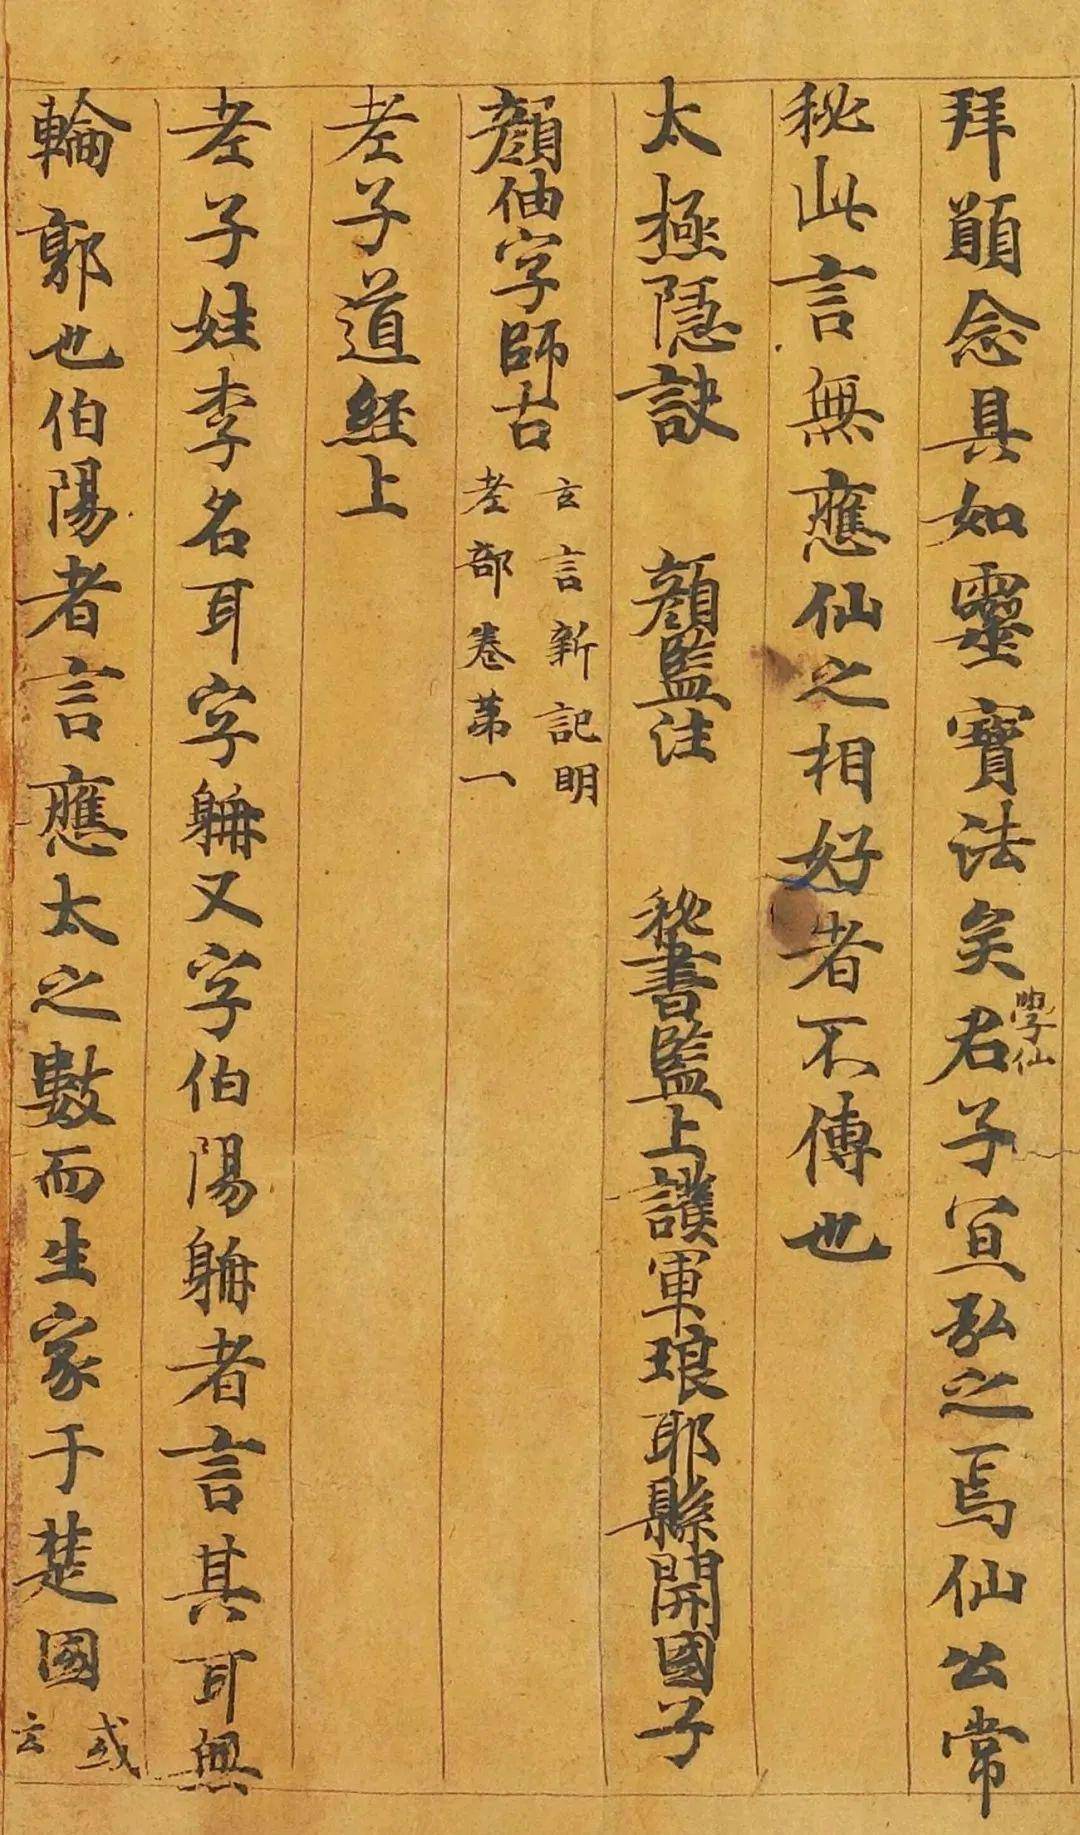 拜願念具如靈寶法矣學仙君子宜弘之焉仙公常
秘此言無應仙之相好者不傳也
太極隱訣 顏監注 秘書監上護軍琅耶縣開國子
顏伷字師古
玄言新記明
老部卷第一
老子道經上
老子姓李名耳字聃又字伯陽聃者言其耳無
輪郭也伯陽者言應太之數而生家于楚國
或
云